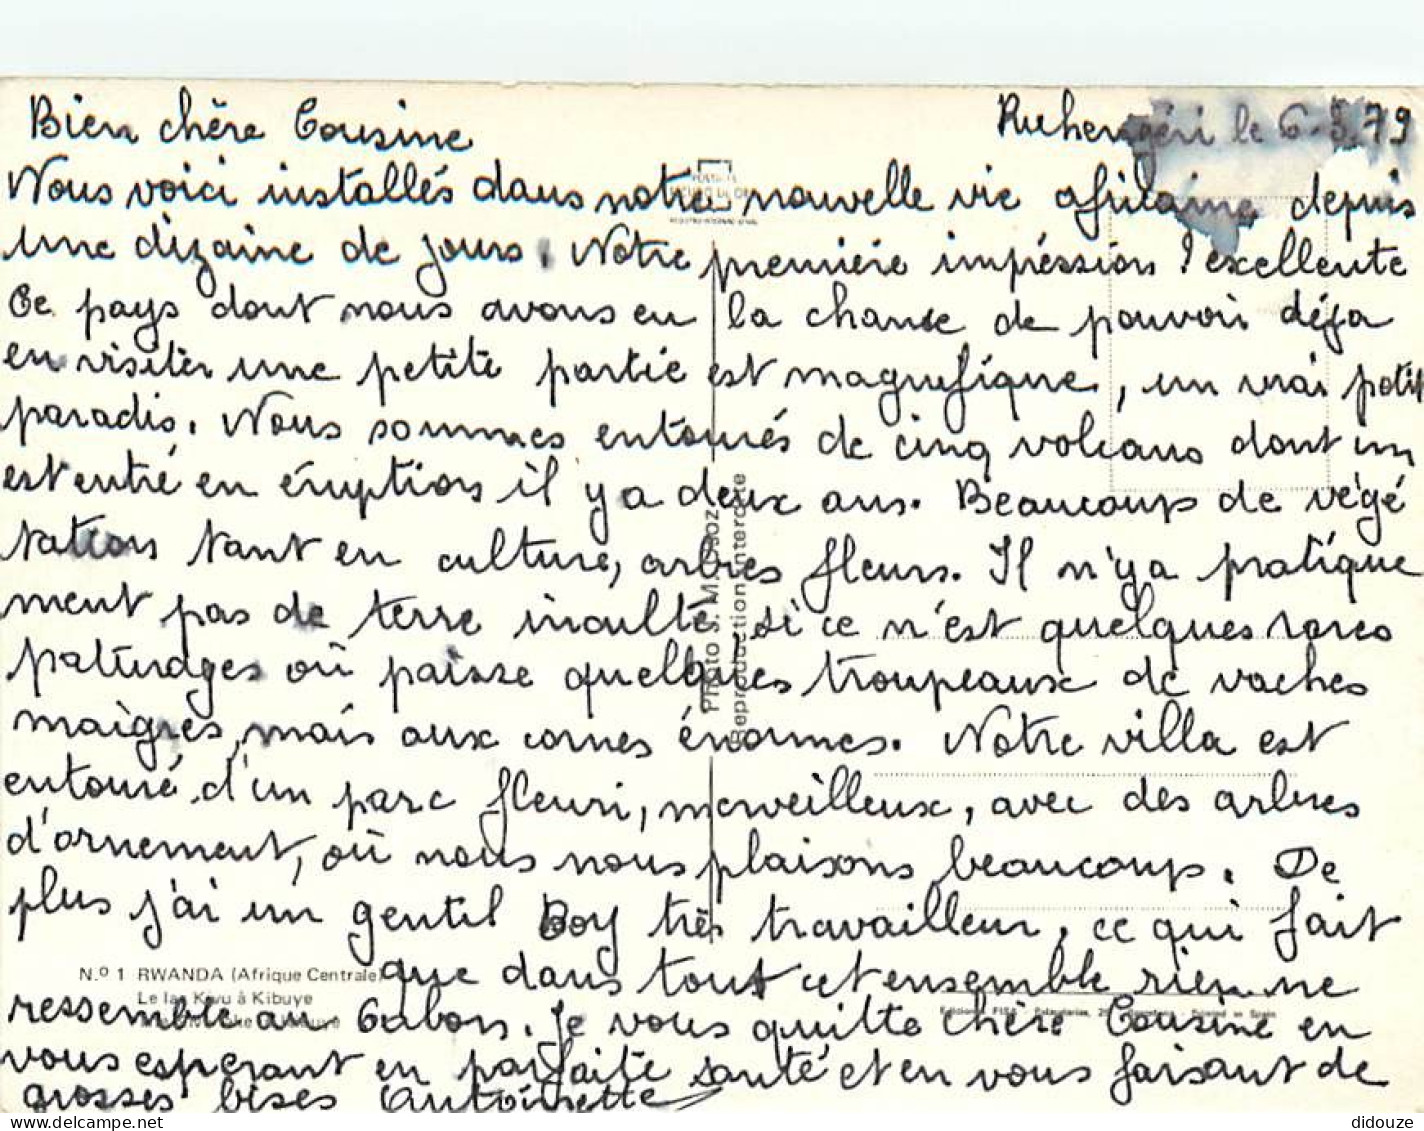 Ruhengéri le 6.3.79
Bien chère Cousine
Nous voici installés dans notre nouvelle vie africaine depuis
une dizaine de jours. Notre première impréssion ! excellente
Ce pays dont nous avons eu la chance de pouvoir déja
en visiter une petite partie est magnifique, un vrai petit
paradis. Nous sommes entourés de cinq volcans dont un
est entré en éruption il y a deux ans. Beaucoup de végé
tation tant en culture, arbres fleurs. Il n'y a pratique
ment pas de terre inculte, si ce n'est quelques rares
paturages où paisse quelques troupeaux de vaches
maigres, mais aux cornes énormes. Notre villa est
entouré d'un parc fleuri, merveilleux, avec des arbres
d'ornement, où nous nous plaisons beaucoup. De
plus j'ai un gentil Boy très travailleur, ce qui fait
que dans tout cet ensemble rien ne
ressemble au Gabon. Je vous quitte chère Cousine en
vous esperant en parfaite santé et en vous faisant de
grosses bises Antoinette
N.º 1 RWANDA (Afrique Centrale)
Le lac Kivu à Kibuye
Photo S. M.
Reproduction interdite
delcampe.net
didouze